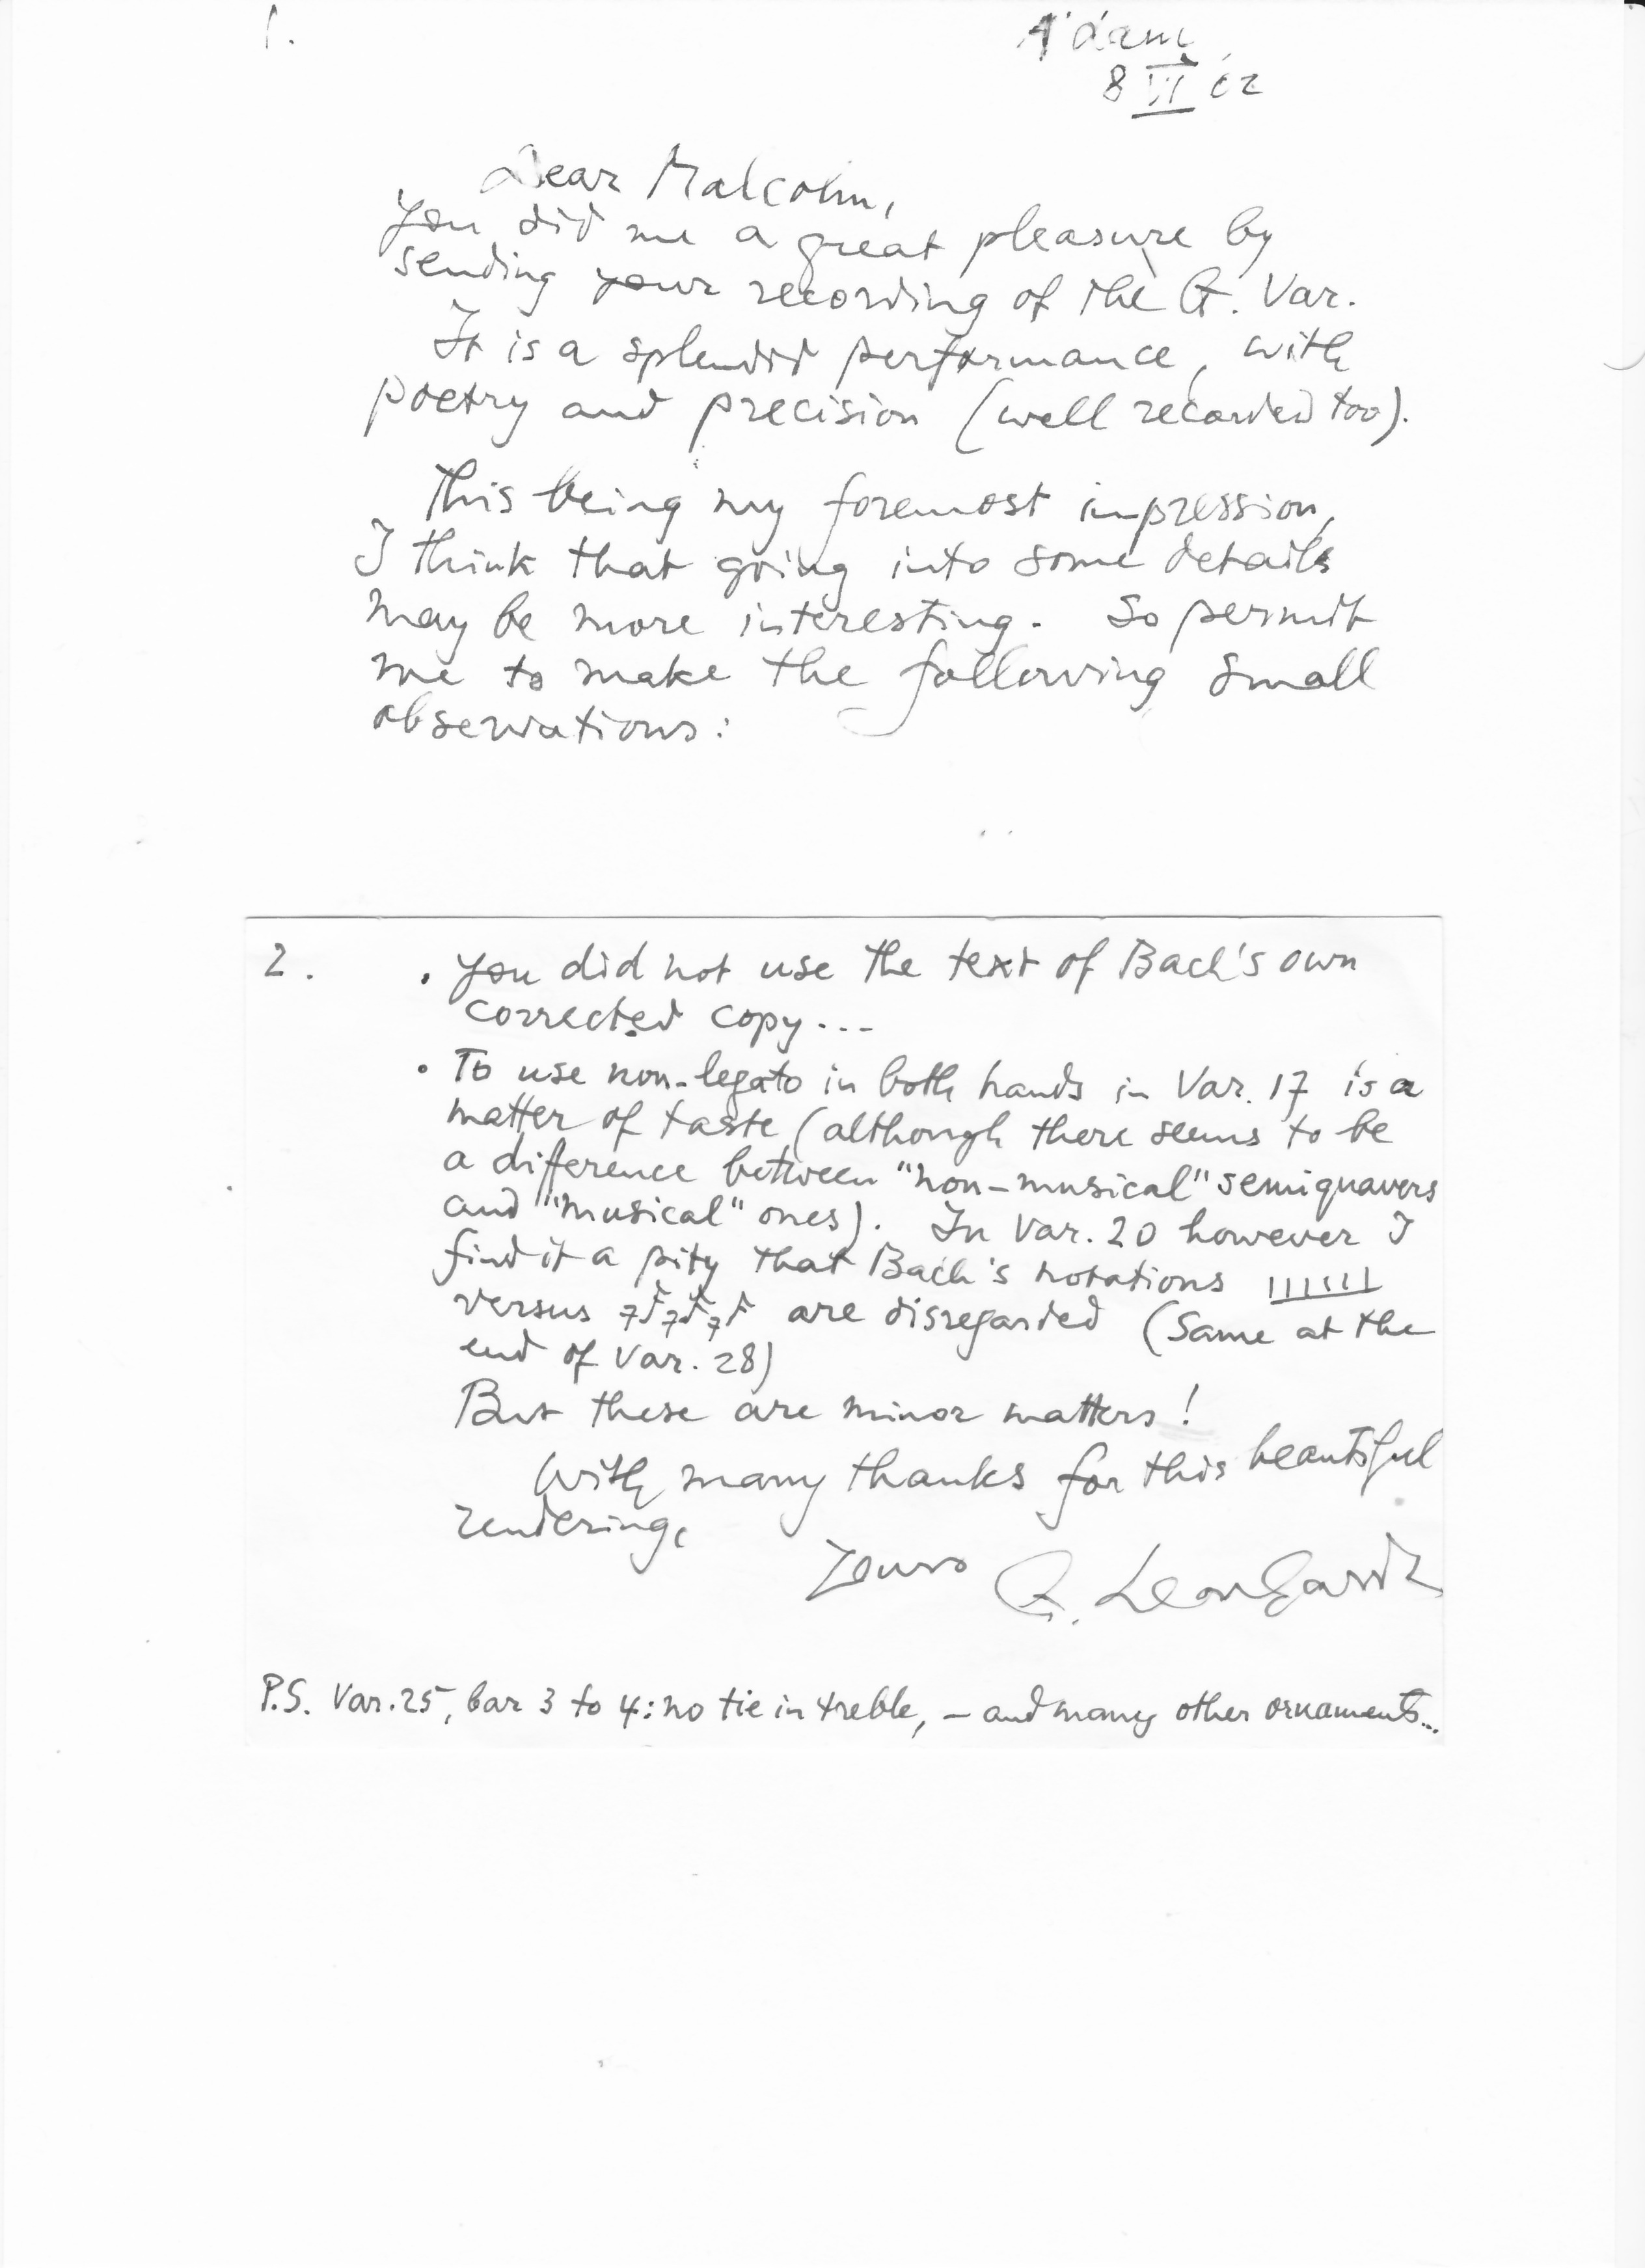 1.
A'dam,
8 VI '02
Dear Malcolm,
you did me a great pleasure by
sending your recording of the G. Var.
It is a splendid performance, with
poetry and precision (well recorded too).
This being my foremost impression,
I think that going into some details
may be more interesting. So permit
me to make the following small
observations:
2. • you did not use the text of Bach's own
corrected copy...
• To use non-legato in both hands in Var. 17 is a
matter of taste (although there seems to be
a difference between "non-musical" semiquavers
and "musical" ones). In Var. 20 however I
find it a pity that Bach's notations
versus are disregarded (Same at the
end of Var. 28)
But these are minor matters!
With many thanks for this beautiful
rendering,
Yours G. Leonhardt
P.S. Var. 25, bar 3 to 4: no tie in treble, – and many other ornaments...